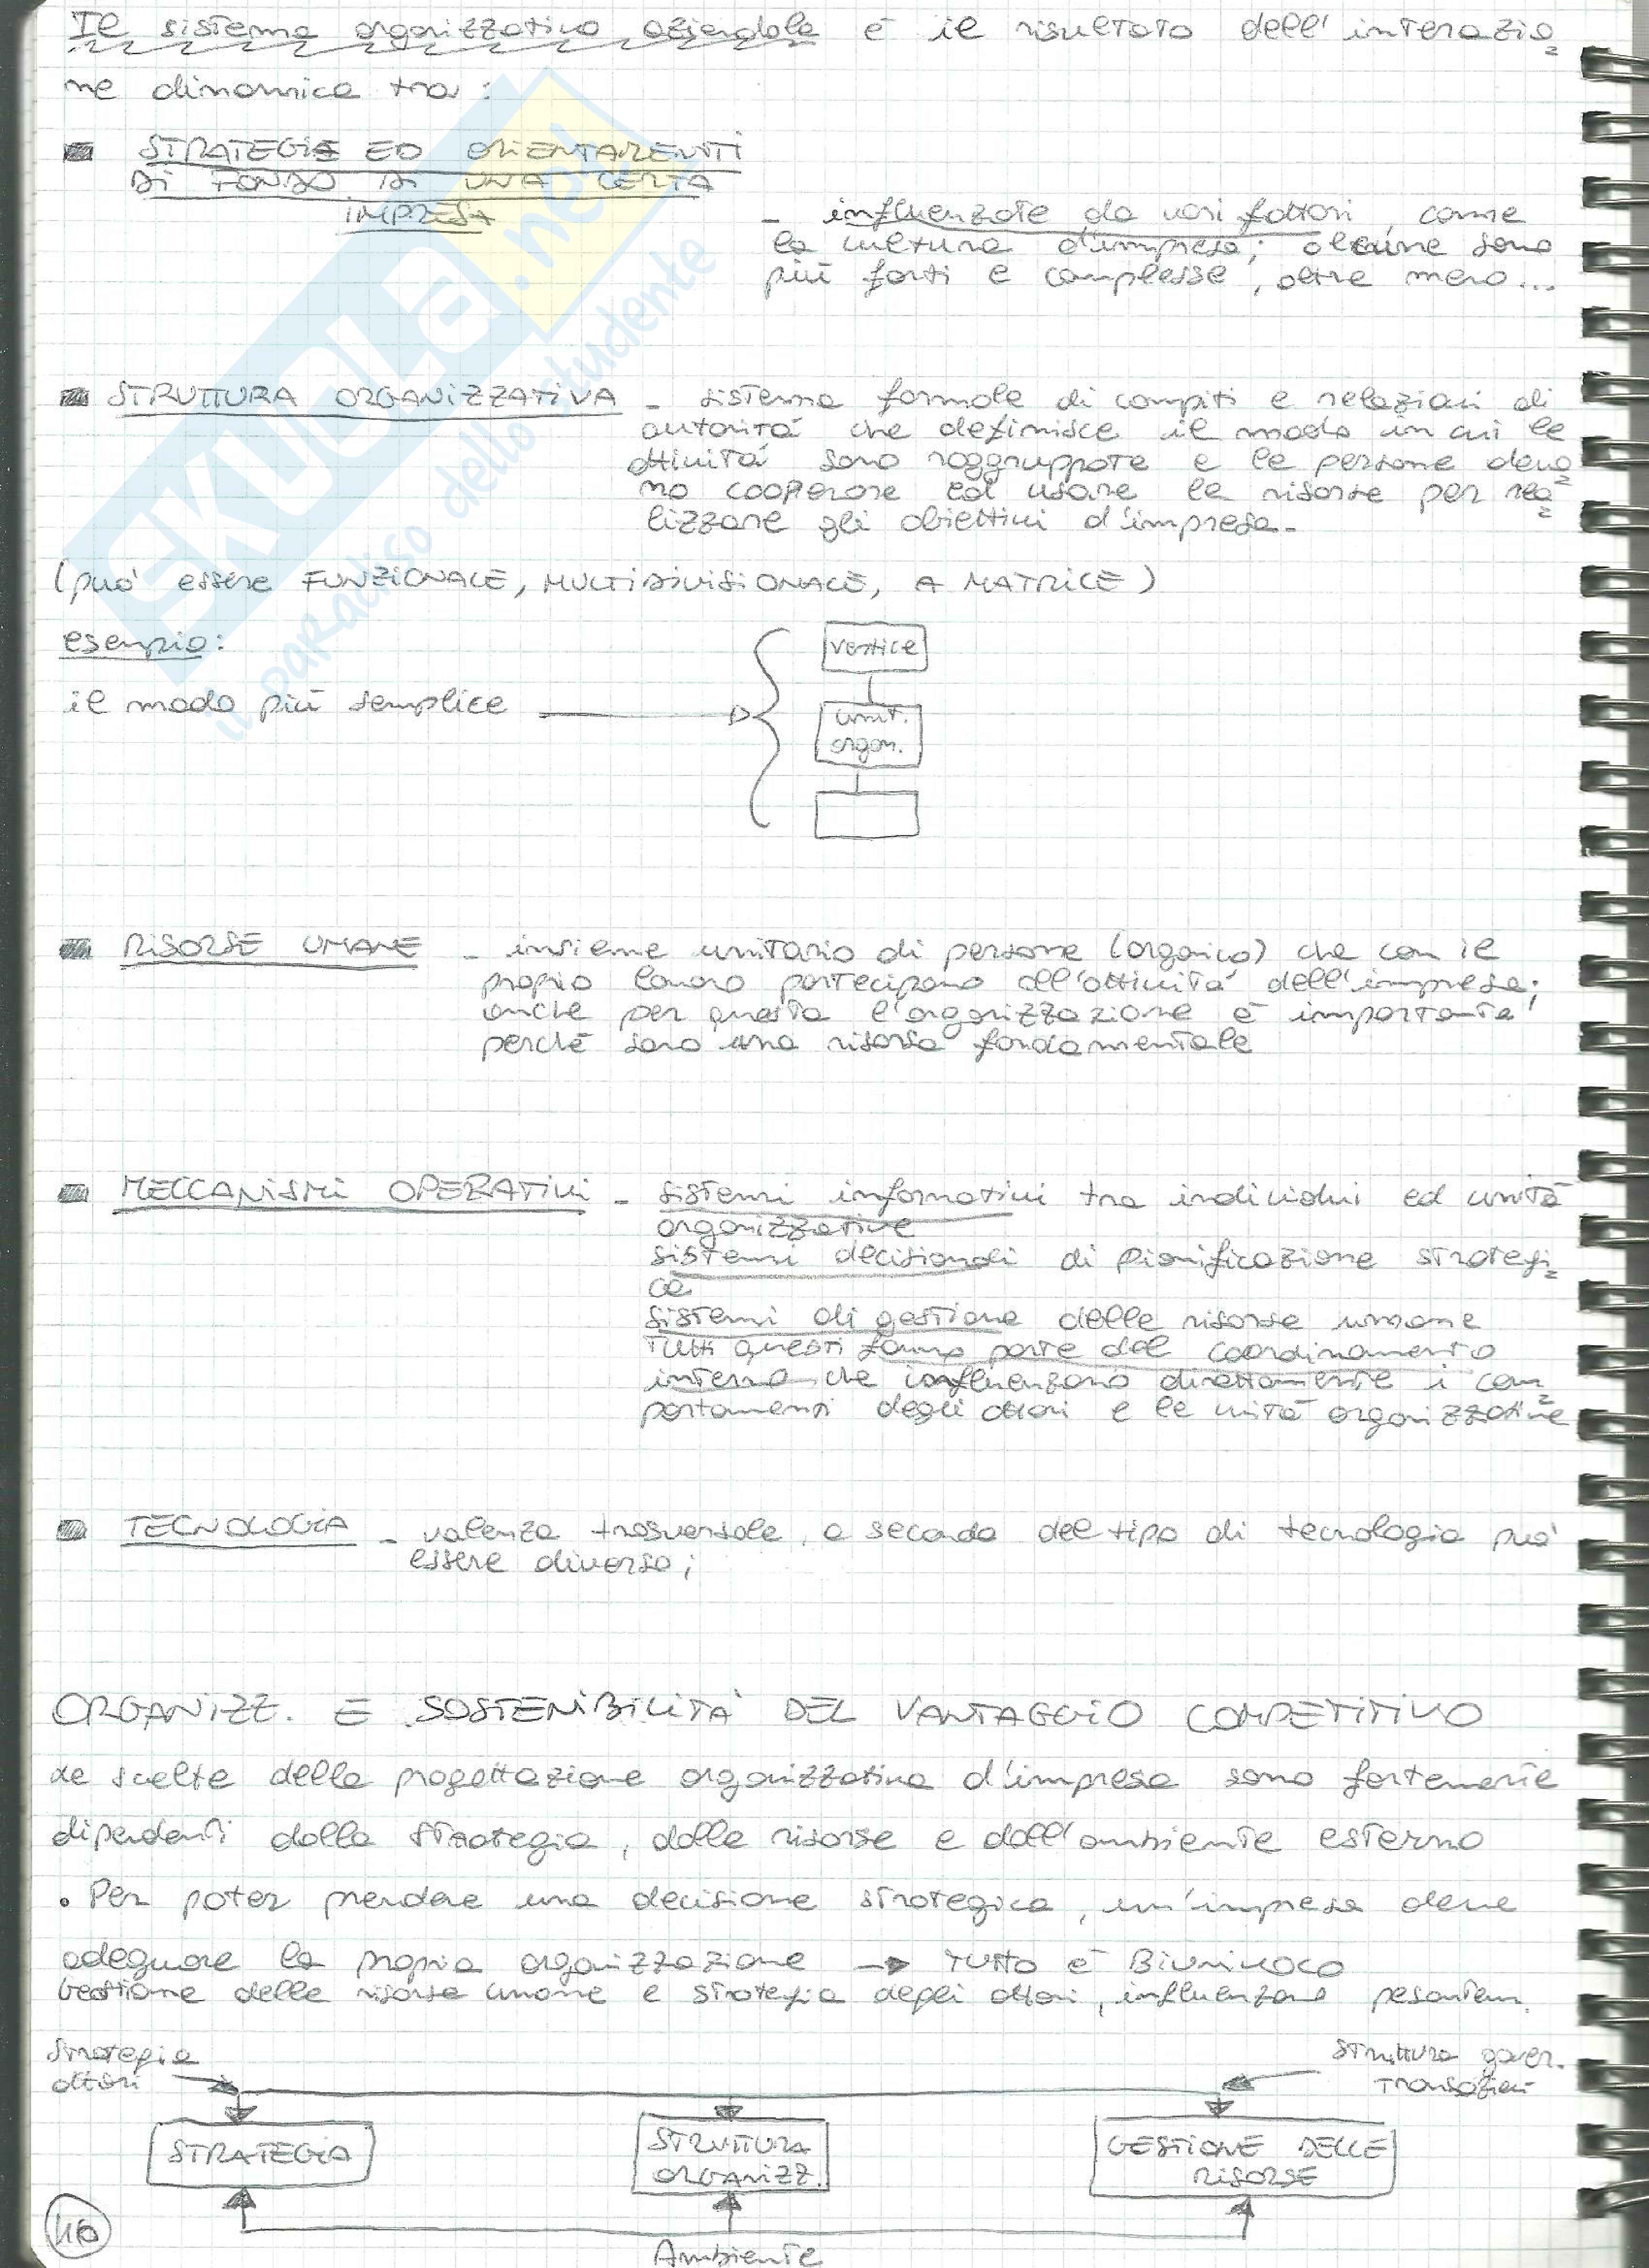 Il sistema organizzativo aziendale è il risultato dell'interazio
ne dinamica tra:
STRATEGIE ED ORIENTAMENTI
DI FONDO DI UNA CERTA
IMPRESA
- influenzate da vari fattori, come
la cultura d'impresa; alcune sono
più forti e complesse, altre meno...
STRUTTURA ORGANIZZATIVA - sistema formale di compiti e relazioni di
autorità che definisce il modo in cui le
attività sono raggruppate e le persone devo
no cooperare ed usare le risorse per rea
lizzare gli obiettivi d'impresa.
(può essere FUNZIONALE, MULTIDIVISIONALE, A MATRICE)
esempio:
vertice
il modo più semplice
unit.
organ.
RISORSE UMANE - insieme unitario di persone (organico) che con il
proprio lavoro partecipano all'attività dell'impresa;
anche per questo l'organizzazione è importante
perché sono una risorsa fondamentale
MECCANISMI OPERATIVI - sistemi informativi tra individui ed unità
organizzative
sistemi decisionali di pianificazione strategi
ca
sistemi di gestione delle risorse umane
Tutti questi fanno parte del coordinamento
interno che influenzano direttamente i com
portamenti degli attori e le unità organizzative
TECNOLOGIA - valenza trasversale, a seconda del tipo di tecnologia può
essere diversa;
ORGANIZZ. E SOSTENIBILITÀ DEL VANTAGGIO COMPETITIVO
Le scelte della progettazione organizzativa d'impresa sono fortemente
dipendenti dalla strategia, dalle risorse e dall'ambiente esterno
• Per poter prendere una decisione strategica, un'impresa deve
adeguare la propria organizzazione → TUTTO È BIUNIVOCO
Gestione delle risorse umane e strategia degli attori, influenzano pesantem.
Strategia
attori
Struttura gover.
Transazioni
STRATEGIA
STRUTTURA
ORGANIZZ.
GESTIONE DELLE
RISORSE
Ambiente
46
SKUOLA.net
il paradiso dello studente